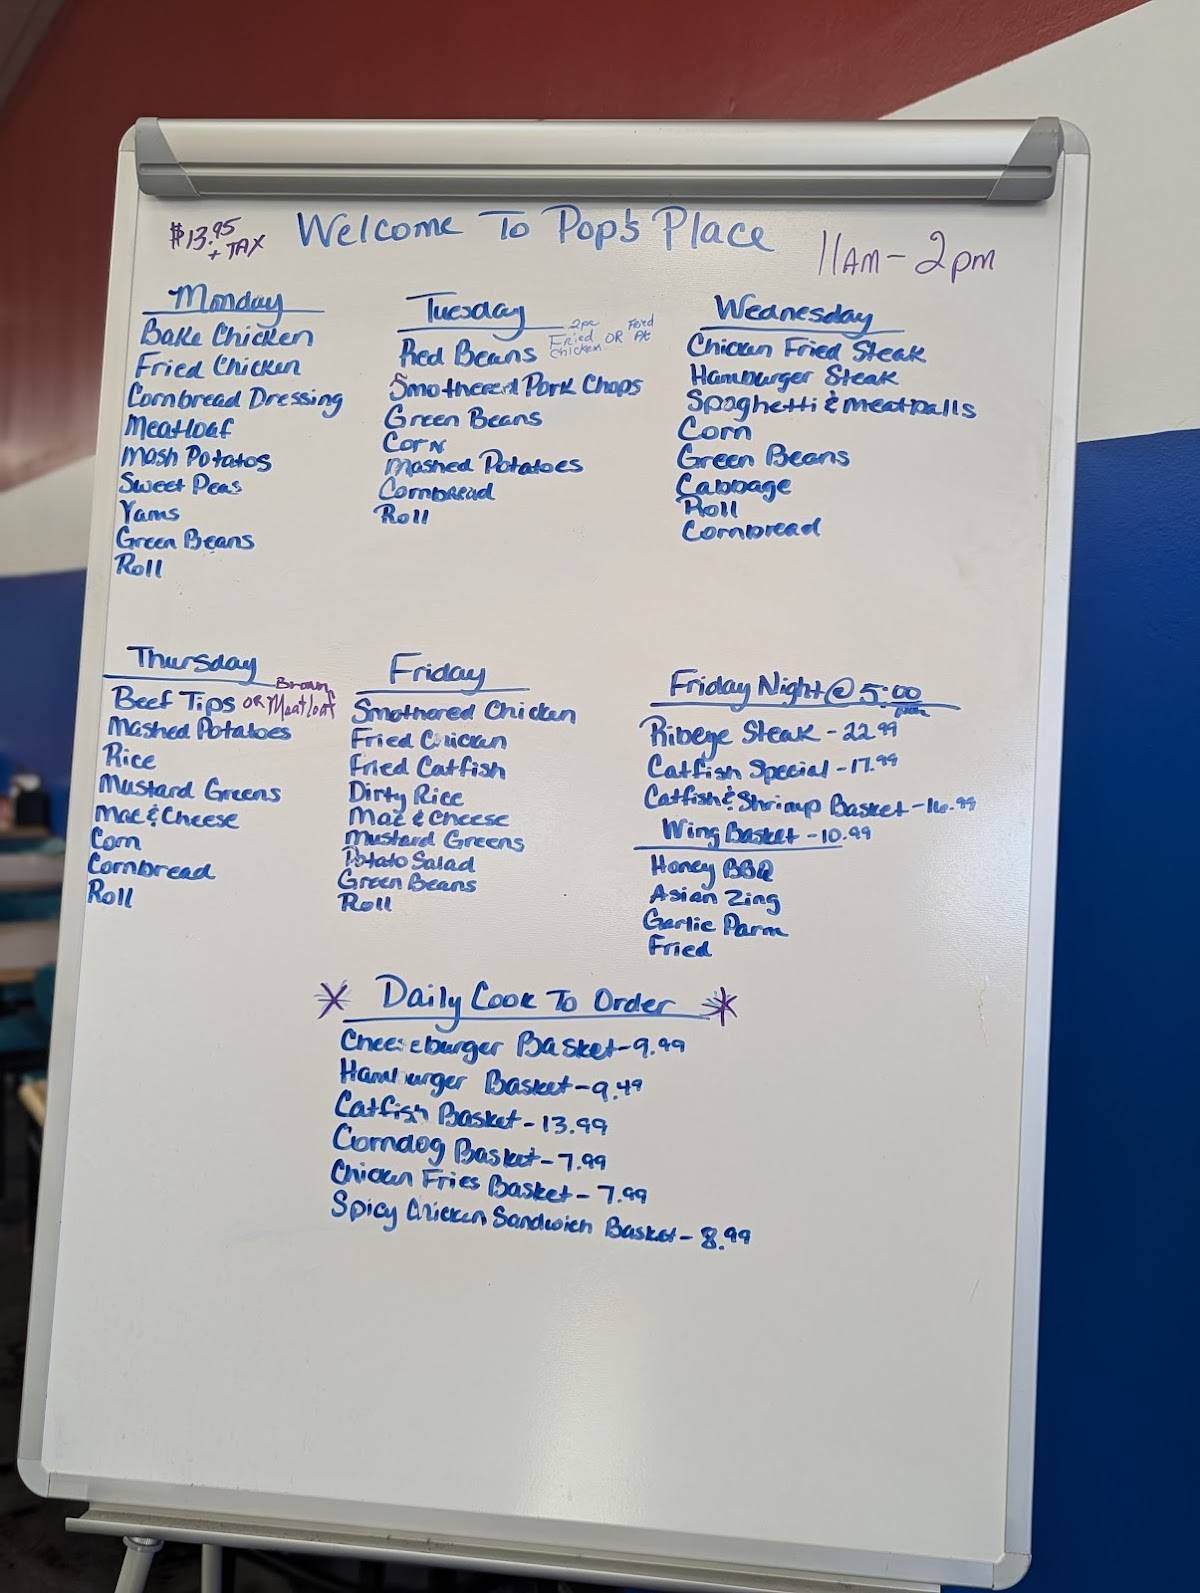 $13.95
+ TAX
Welcome To Pop's Place
11AM - 2pm
Monday
Bake Chicken
Fried Chicken
Cornbread Dressing
Meatloaf
Mash Potatos
Sweet Peas
Yams
Green Beans
Roll
Tuesday
Red Beans
2pc Fried Chicken OR
Smothered Pork Chops
Green Beans
Corn
Mashed Potatoes
Cornbread
Roll
Wednesday
Chicken Fried Steak
Hamburger Steak
Spaghetti & meatballs
Corn
Green Beans
Cabbage
Roll
Cornbread
Thursday
Beef Tips OR Brown Meatloaf
Mashed Potatoes
Rice
Mustard Greens
Mac & Cheese
Corn
Cornbread
Roll
Friday
Smothered Chicken
Fried Chicken
Fried Catfish
Dirty Rice
Mac & Cheese
Mustard Greens
Potato Salad
Green Beans
Roll
Friday Night @ 5:00
Ribeye Steak - 22.99
Catfish Special - 17.99
Catfish & Shrimp Basket - 16.99
Wing Basket - 10.99
Honey BBQ
Asian Zing
Garlic Parm
Fried
* Daily Cook To Order *
Cheeseburger Basket - 9.99
Hamburger Basket - 9.49
Catfish Basket - 13.99
Corndog Basket - 7.99
Chicken Fries Basket - 7.99
Spicy Chicken Sandwich Basket - 8.99